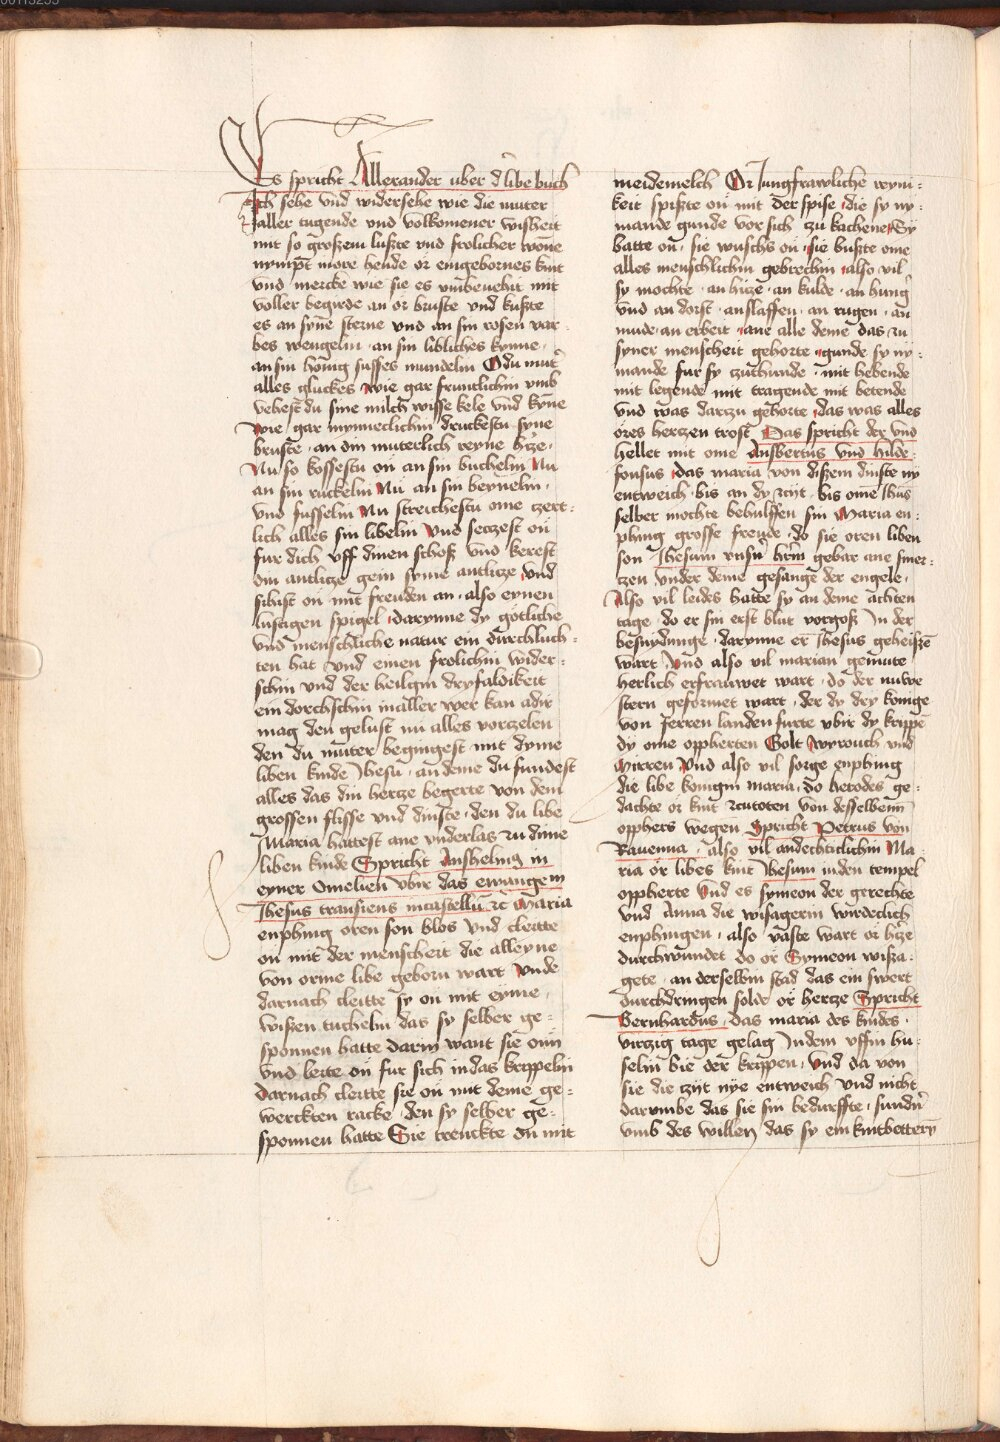 Es spricht Allexander uber d' libe buch
Ich sehe vnd widersehe wie die muter
aller tugende vnd volkomener wisheit
mit so großem lußte vnd frolicher wone
nympt more hende or eingebornes kint
vnd mercke wie sie es vmbeuehit mit
voller begirde an or bruste vnd kußte
es an syne sterne vnd an sin rosen var
bes wengelin · an sin libliches kynne ·
an sin honig susses mundelin O du mut'
alles gluckes wie gar fruntlichin vmb
vehest du sine milch wisse kele vnd kyne
wie gar mynneclichin druckestu syne
bruste · an din muterlich reyne h'tze ·
Nu so kossestu on an sin buchelin Nu
an sin ruckelin Nu an sin beynelin ·
vnd fusselin Nu streichestu ome czert-
lich alles sin libelin vnd seczest on
fur dich vff dinen schoß vnd kerest
din antlicze gein syme antlicze vnd
sihist on mit freuden an · also eynen
lustigen spigel · darynne dy gotliche
vnd menschliche natur ein durchluch-
ten hat vnd einen frolichin wider-
schin vnd der heilgin dryfaldikeit
ein dorchschin inaller wer kan adir
mag den gelust nu alles vorczelen
den du muter begingest mit dyme
liben kinde Jhesu · an deme du fundest
alles das din hercze begerte von dem
grossen flisse vnd dinste · den du libe
Maria hattest ane vnderlas zu dime
liben kinde Spricht Anshelmg in
eyner Omelien vbir das ewangem
Jhesus transiens incastellu zc Maria
enphing oren son blos vnd cleitte
on mit der menscheit die alleyne
von orme libe geborn wart vnde
darnach cleitte sy on mit eyme ·
wißen tuchelin das sy selber ge-
sponnen hatte darin want sie oun
vnd leite on fur sich in das krippelin
darnach cleitte sie on mit deme ge-
werckten racke · den sy selber ge-
sponnen hatte Sie trenckte on mit
meidemelch Or Jungfrawliche reyni-
keit spißte on mit der spise · die sy ny-
mande gunde vor sich zu kachene Sy
hatte on · sie wuschs on · sie bußte ome
alles menschlichin gebrechin · also vil
sy mochte · an hicze · an kulde · an hung'
vnd an dorst · anslaffen · an rugen · an
mude · an erbeit · ane alle deme das zu
syner menscheit gehorte · gunde sy ny-
mande fur sy zuthunde · mit hebende
mit legende mit tragende mit betende
vnd was darzu gehorte · das was alles
ores herczen trost Das spricht der vnd
hellet mit ome Ansbertus vnd hilde-
fonsus · das maria von dißem dinste ny
entweich · bis an dy zijt · bis ome Jhus
selber mochte behulffen sin Maria en-
phing grosse freude · do sie oren liben
son Jhesum vnsn h'rn gebar ane smer-
tzen vnder deme gesange der engele ·
Also vil leides hatte sy an deme achten
tage · do er sin erst blut vorgoß In der
besnydunge · darynne er Jhesus geheißē
wart vnd also vil marian gemute ·
herlich erfrauwet wart · do der nuwe
stern geformet wart · der dy dry konige
von ferren landen furte vbir dy krippē
dy ome oppherten Golt wyrouch vnd
Mirren vnd also vil sorge enphing
die libe konigin maria · do herodes ge-
dachte or kint zcutoten von desselbenn
opphers wegen Spricht Petrus von
Rauenna · also vil andechticlichin Ma-
ria or libes kint Jhesum inden tempel
oppherte vnd es symeon der gerechte
vnd Anna die wisagerin wirdeclich
enphingen · also vaste wart or h'tze
durchwundet do or Symeon wißa-
gete · an derselbin stad das ein swert
durchdringen solde or hercze Spricht
Bernhardus · das maria des kindes ·
virczig tage gelag Indem vssin hu-
selin bie der krippen · vnd da von
sie die zijt nye entweich vnd nicht
darumbe das sie sin bedurffte · sundn'
vmb des willen das sy ein kintbettery